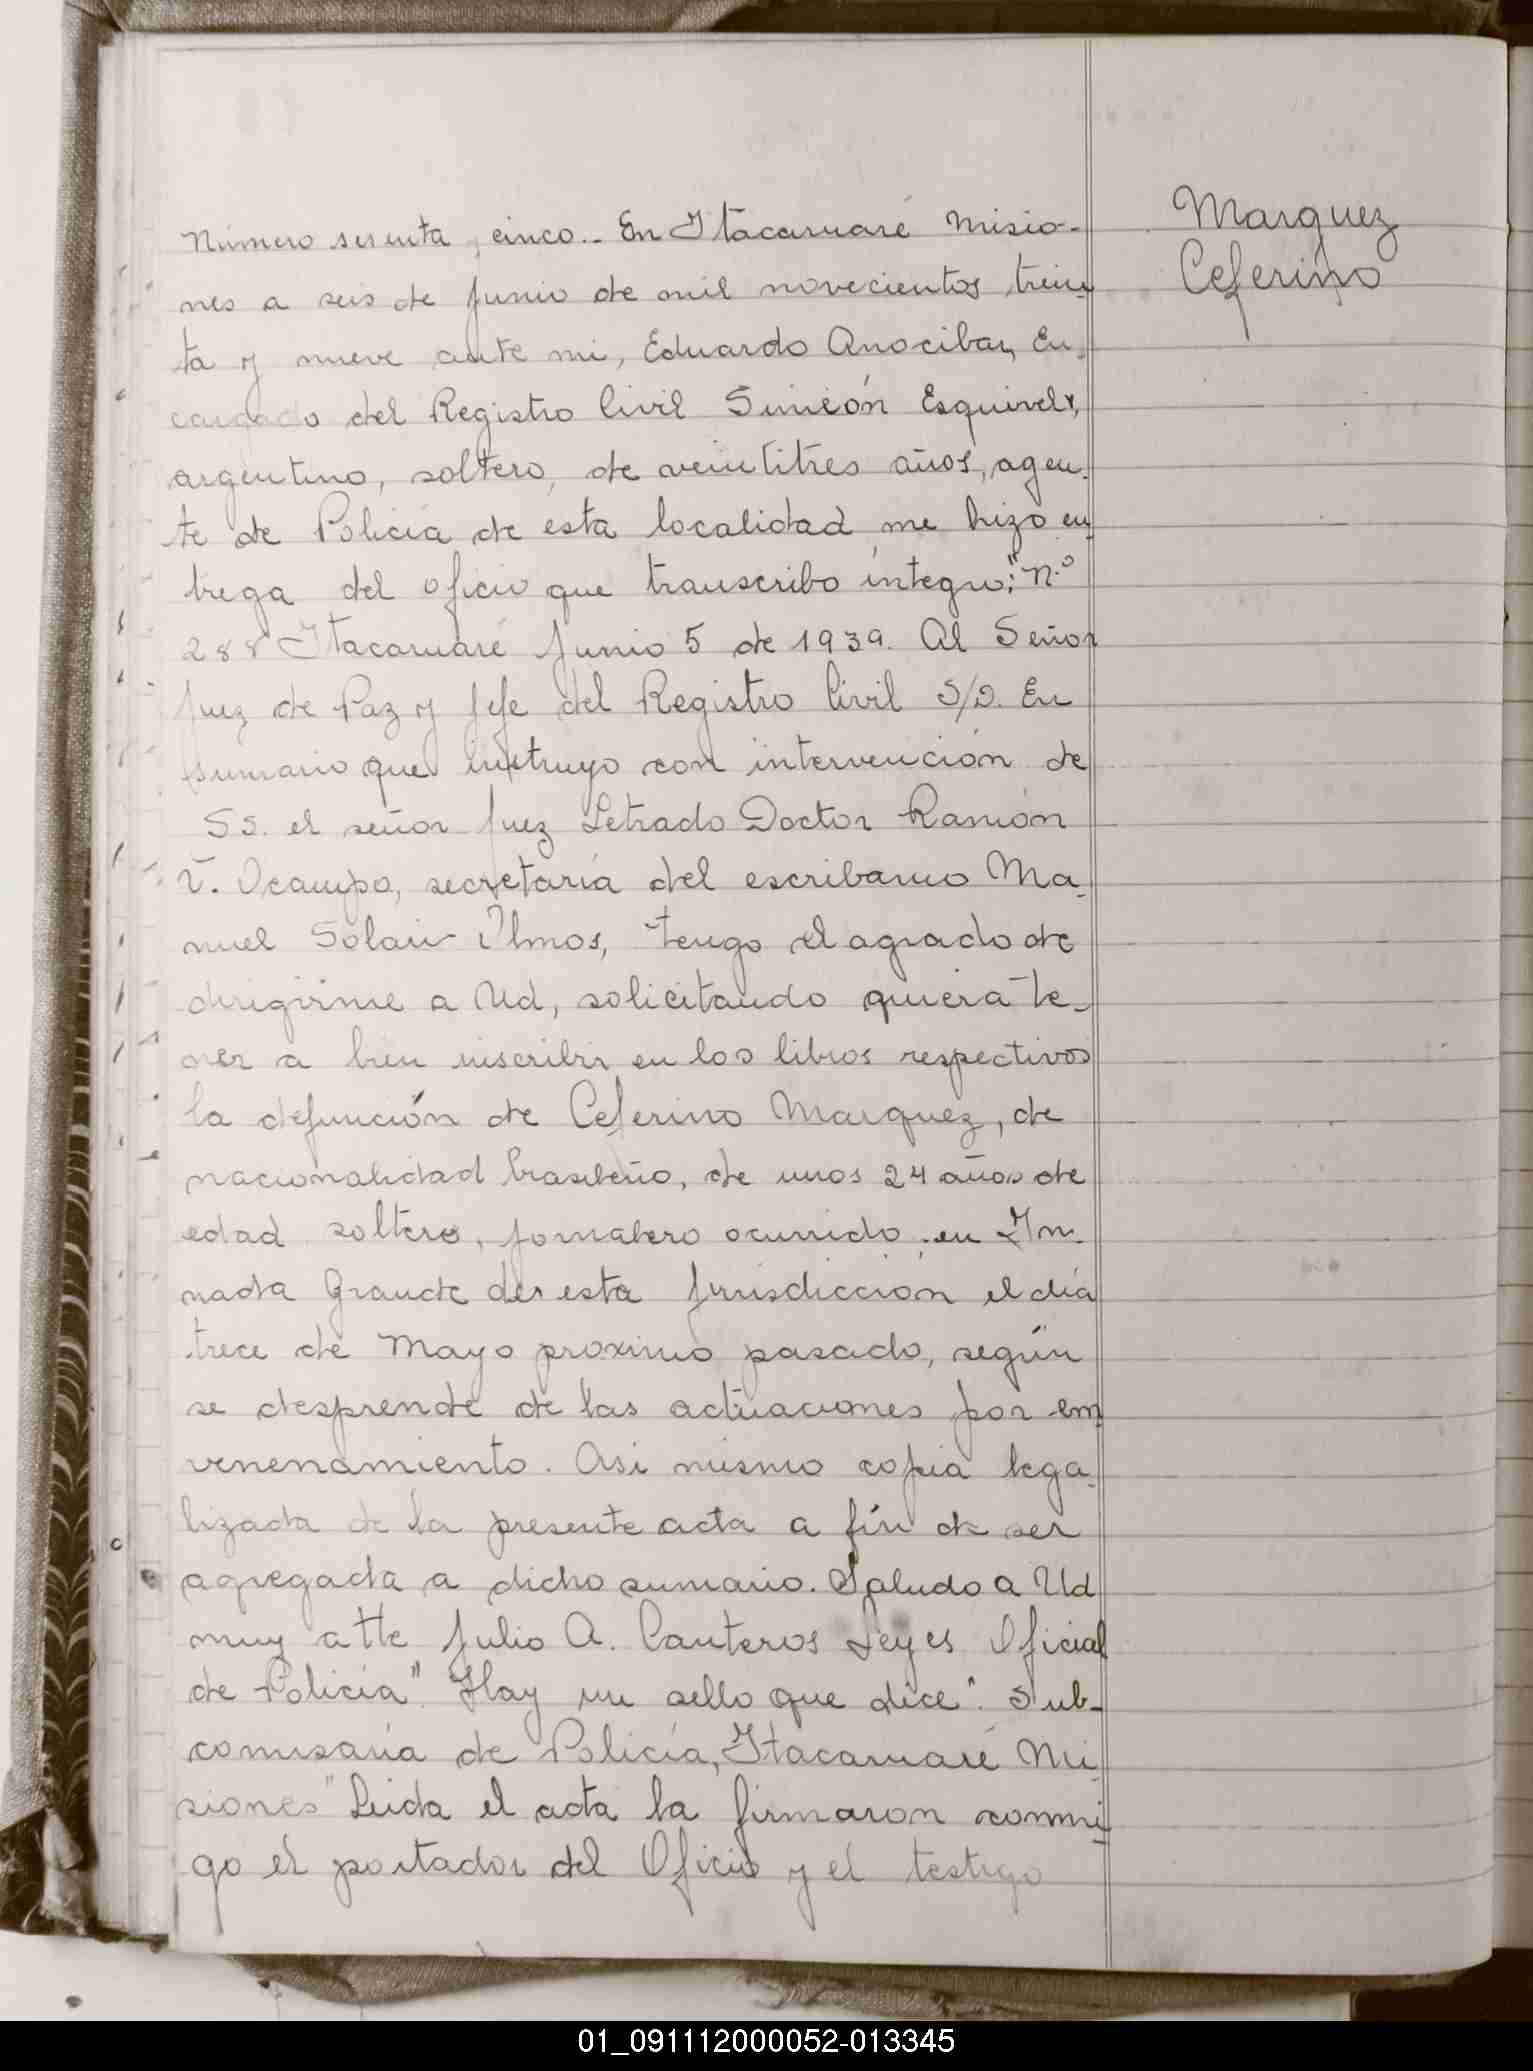 Marquez
Ceferino
Número sesenta y cinco.- En Itacaruaré Misio-
nes a seis de Junio de mil novecientos trein
ta y nueve ante mi, Eduardo Anocibar, En-
cargado del Registro Civil Simeón Esquivel,
argentino, soltero, de veintitres años, agen-
te de Policía de esta localidad me hizo en
trega del oficio que transcribo íntegro: "N.º
288 Itacaruaré Junio 5 de 1939. Al Señor
Juez de Paz y Jefe del Registro Civil S/D. En
sumario que instruyo con intervención de
SS. el señor Juez Letrado Doctor Ramón
Ocampo, secretaría del escribano Ma-
nuel Solari Olmos, tengo el agrado de
dirigirme a Ud, solicitando quiera te-
ner a bien inscribir en los libros respectivos
la defunción de Ceferino Marquez, de
nacionalidad brasileño, de unos 24 años de
edad soltero, jornalero ocurrido en
nada Grande de esta Jurisdicción el día
trece de Mayo proximo pasado, según
se desprende de las actuaciones por em
venenamiento. Asi mismo copia lega-
lizada de la presente acta a fín de ser
agregada a dicho sumario. Saludo a Ud
muy atte Julio A. Canteros Leyes Oficial
de Policía". Hay un sello que dice". Sub-
comisaría de Policía, Itacaruaré Mi-
siones" Leída el acta la firmaron conmi-
go el portador del Oficio y el testigo
01_091112000052-013345